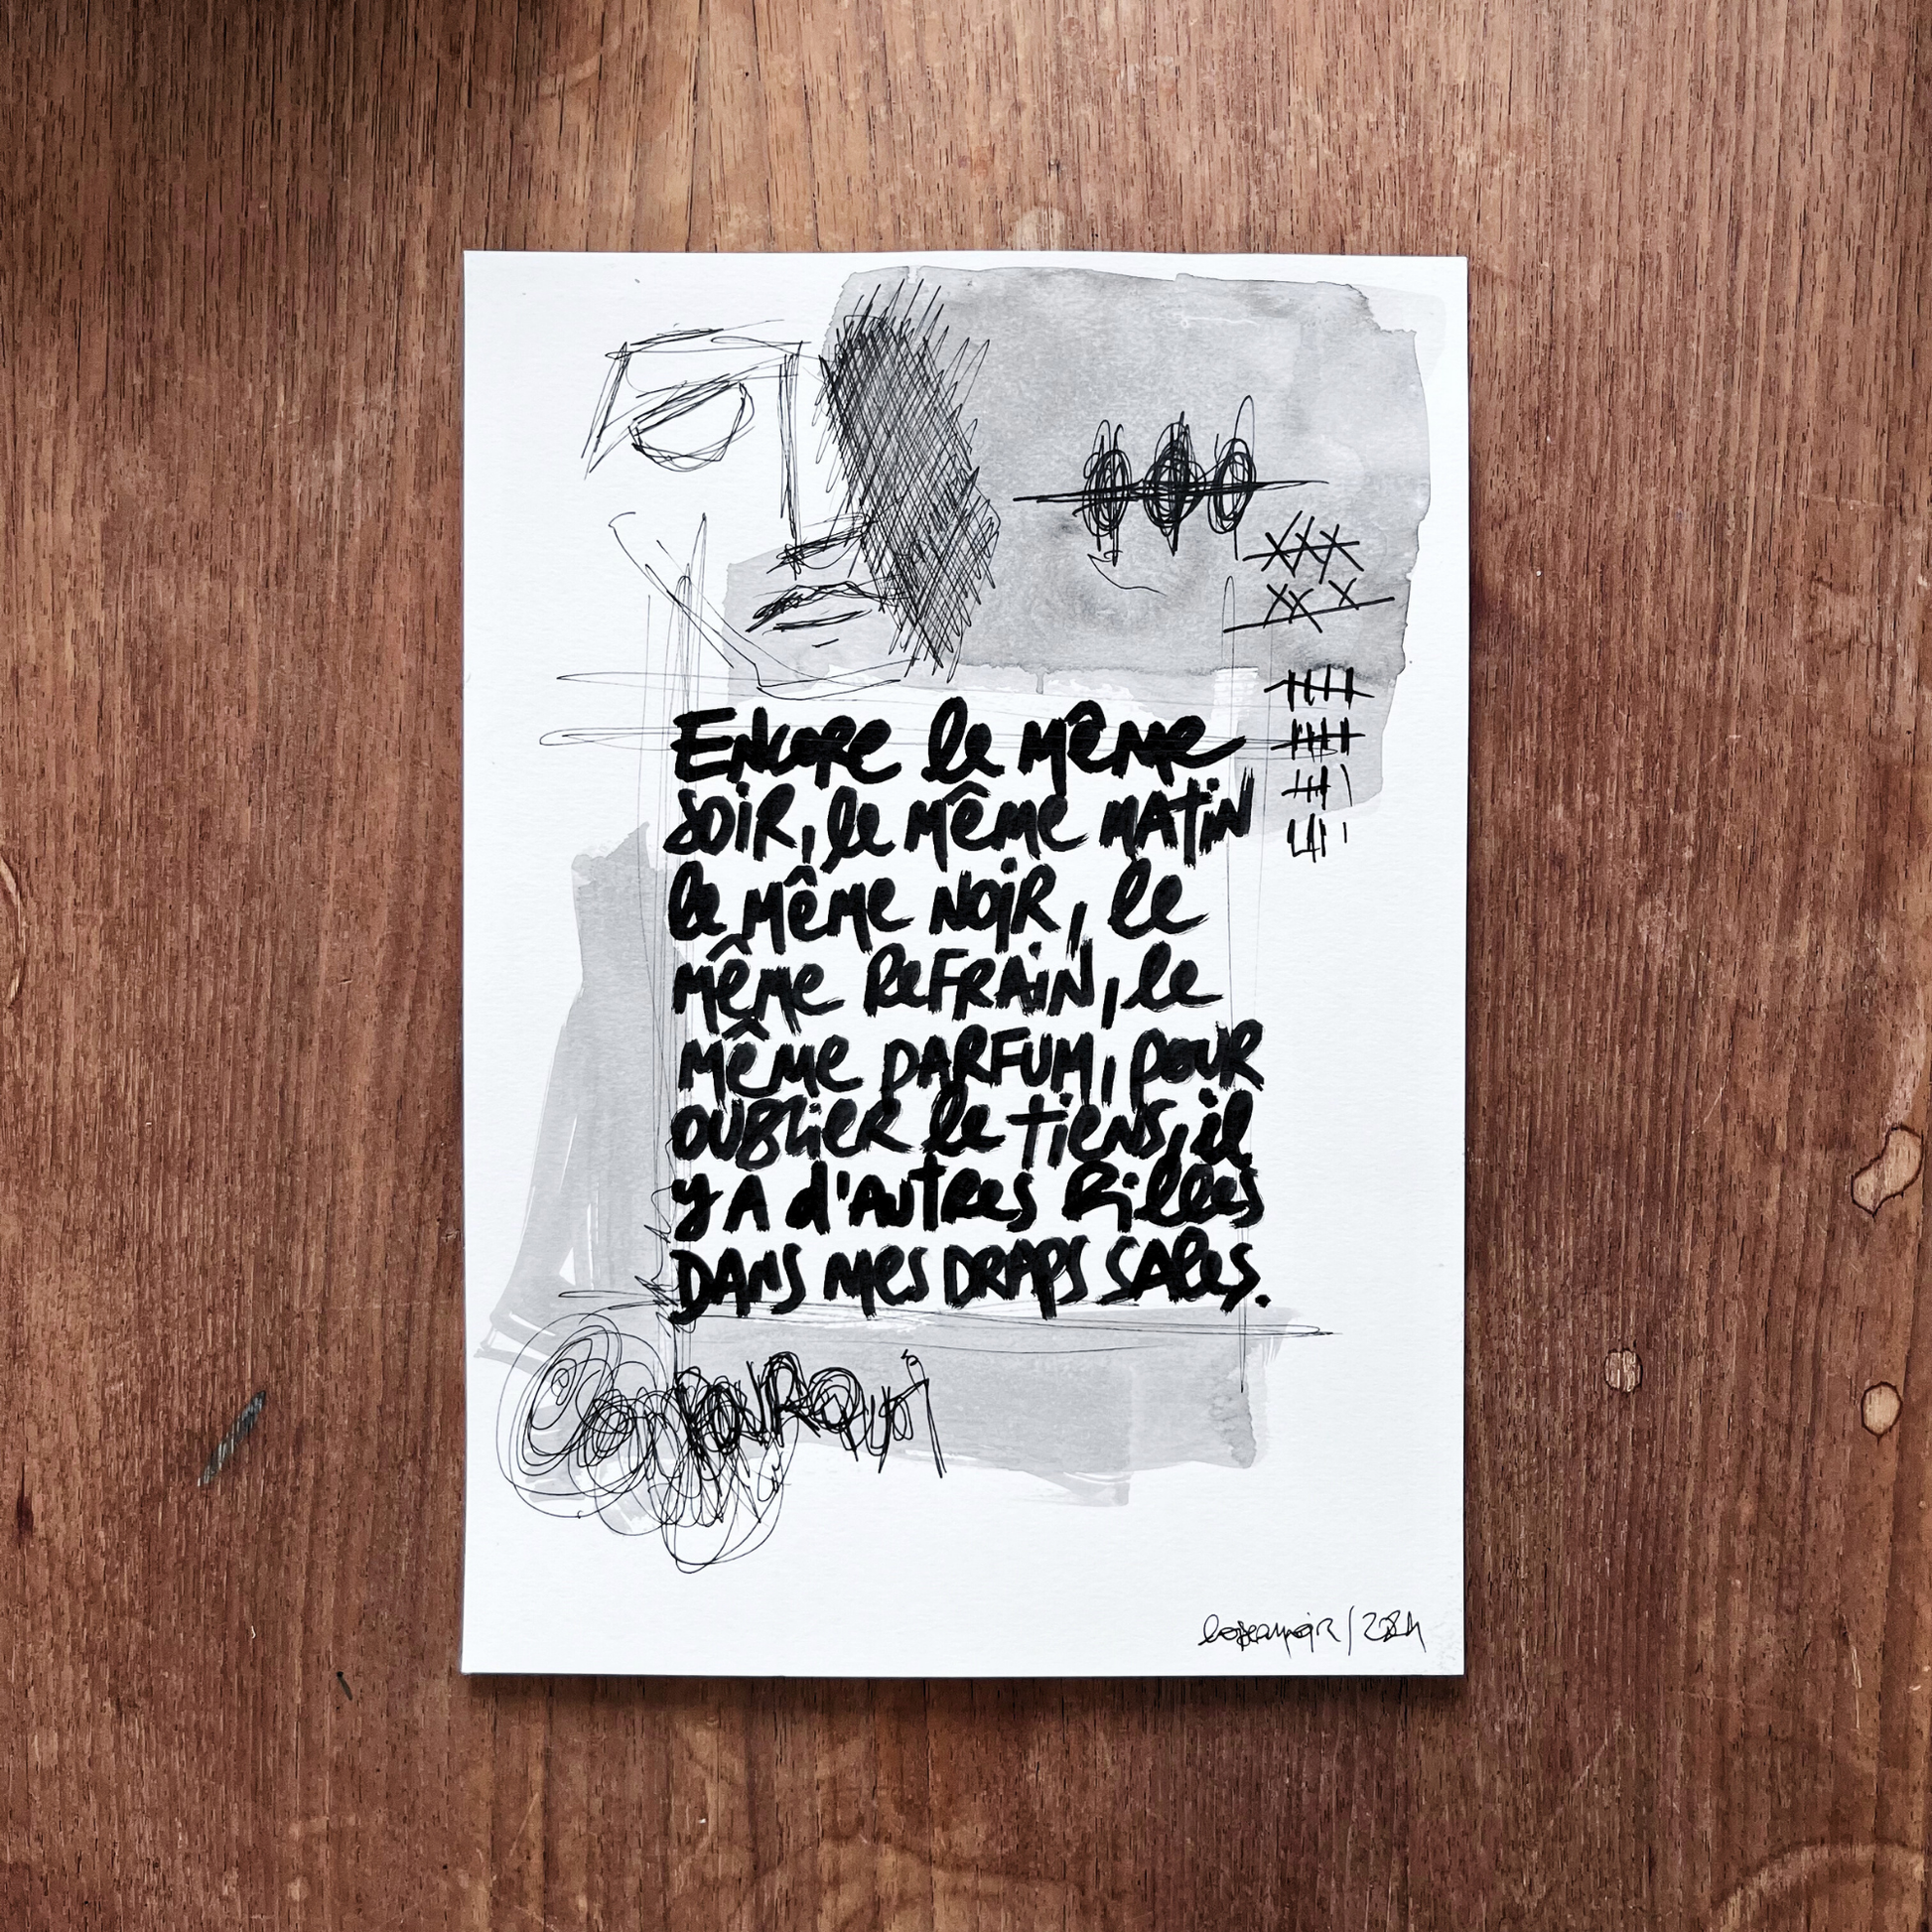 Encore le même
soir, le même matin
le même noir, le
même refrain, le
même parfum, pour
oublier le tiens, il
y a d'autres filles
dans mes draps sales.